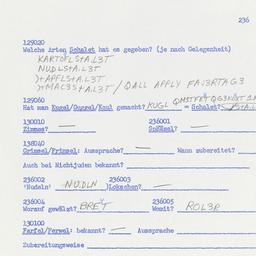 236
129020
Welche Arten Schalet hat es gegeben? (je nach Gelegenheit)
KARTOFLS+A.L3T
NUDLS+A.L3T
)+APFLS+A.L3T
)+MAC3S+A.L3T / QALL APPLY FA:3RTAG3
129060
Hat man Kugel/Guugel/Kuul gemacht? KUGL = Schalet?
130010 236001
Zimmes? — Spätzel? —
138040
Grimsel/Frimsel: Aussprache? — Wann zubereitet?
Auch bei Nichtjuden bekannt?
236002 236003
'Nudeln' NU.DLN Lokschen? —
236004 236005
Worauf gewälzt? BRET Womit? ROL3R
130100
Farfel/Ferwel: bekannt? — Aussprache
Zubereitungsweise